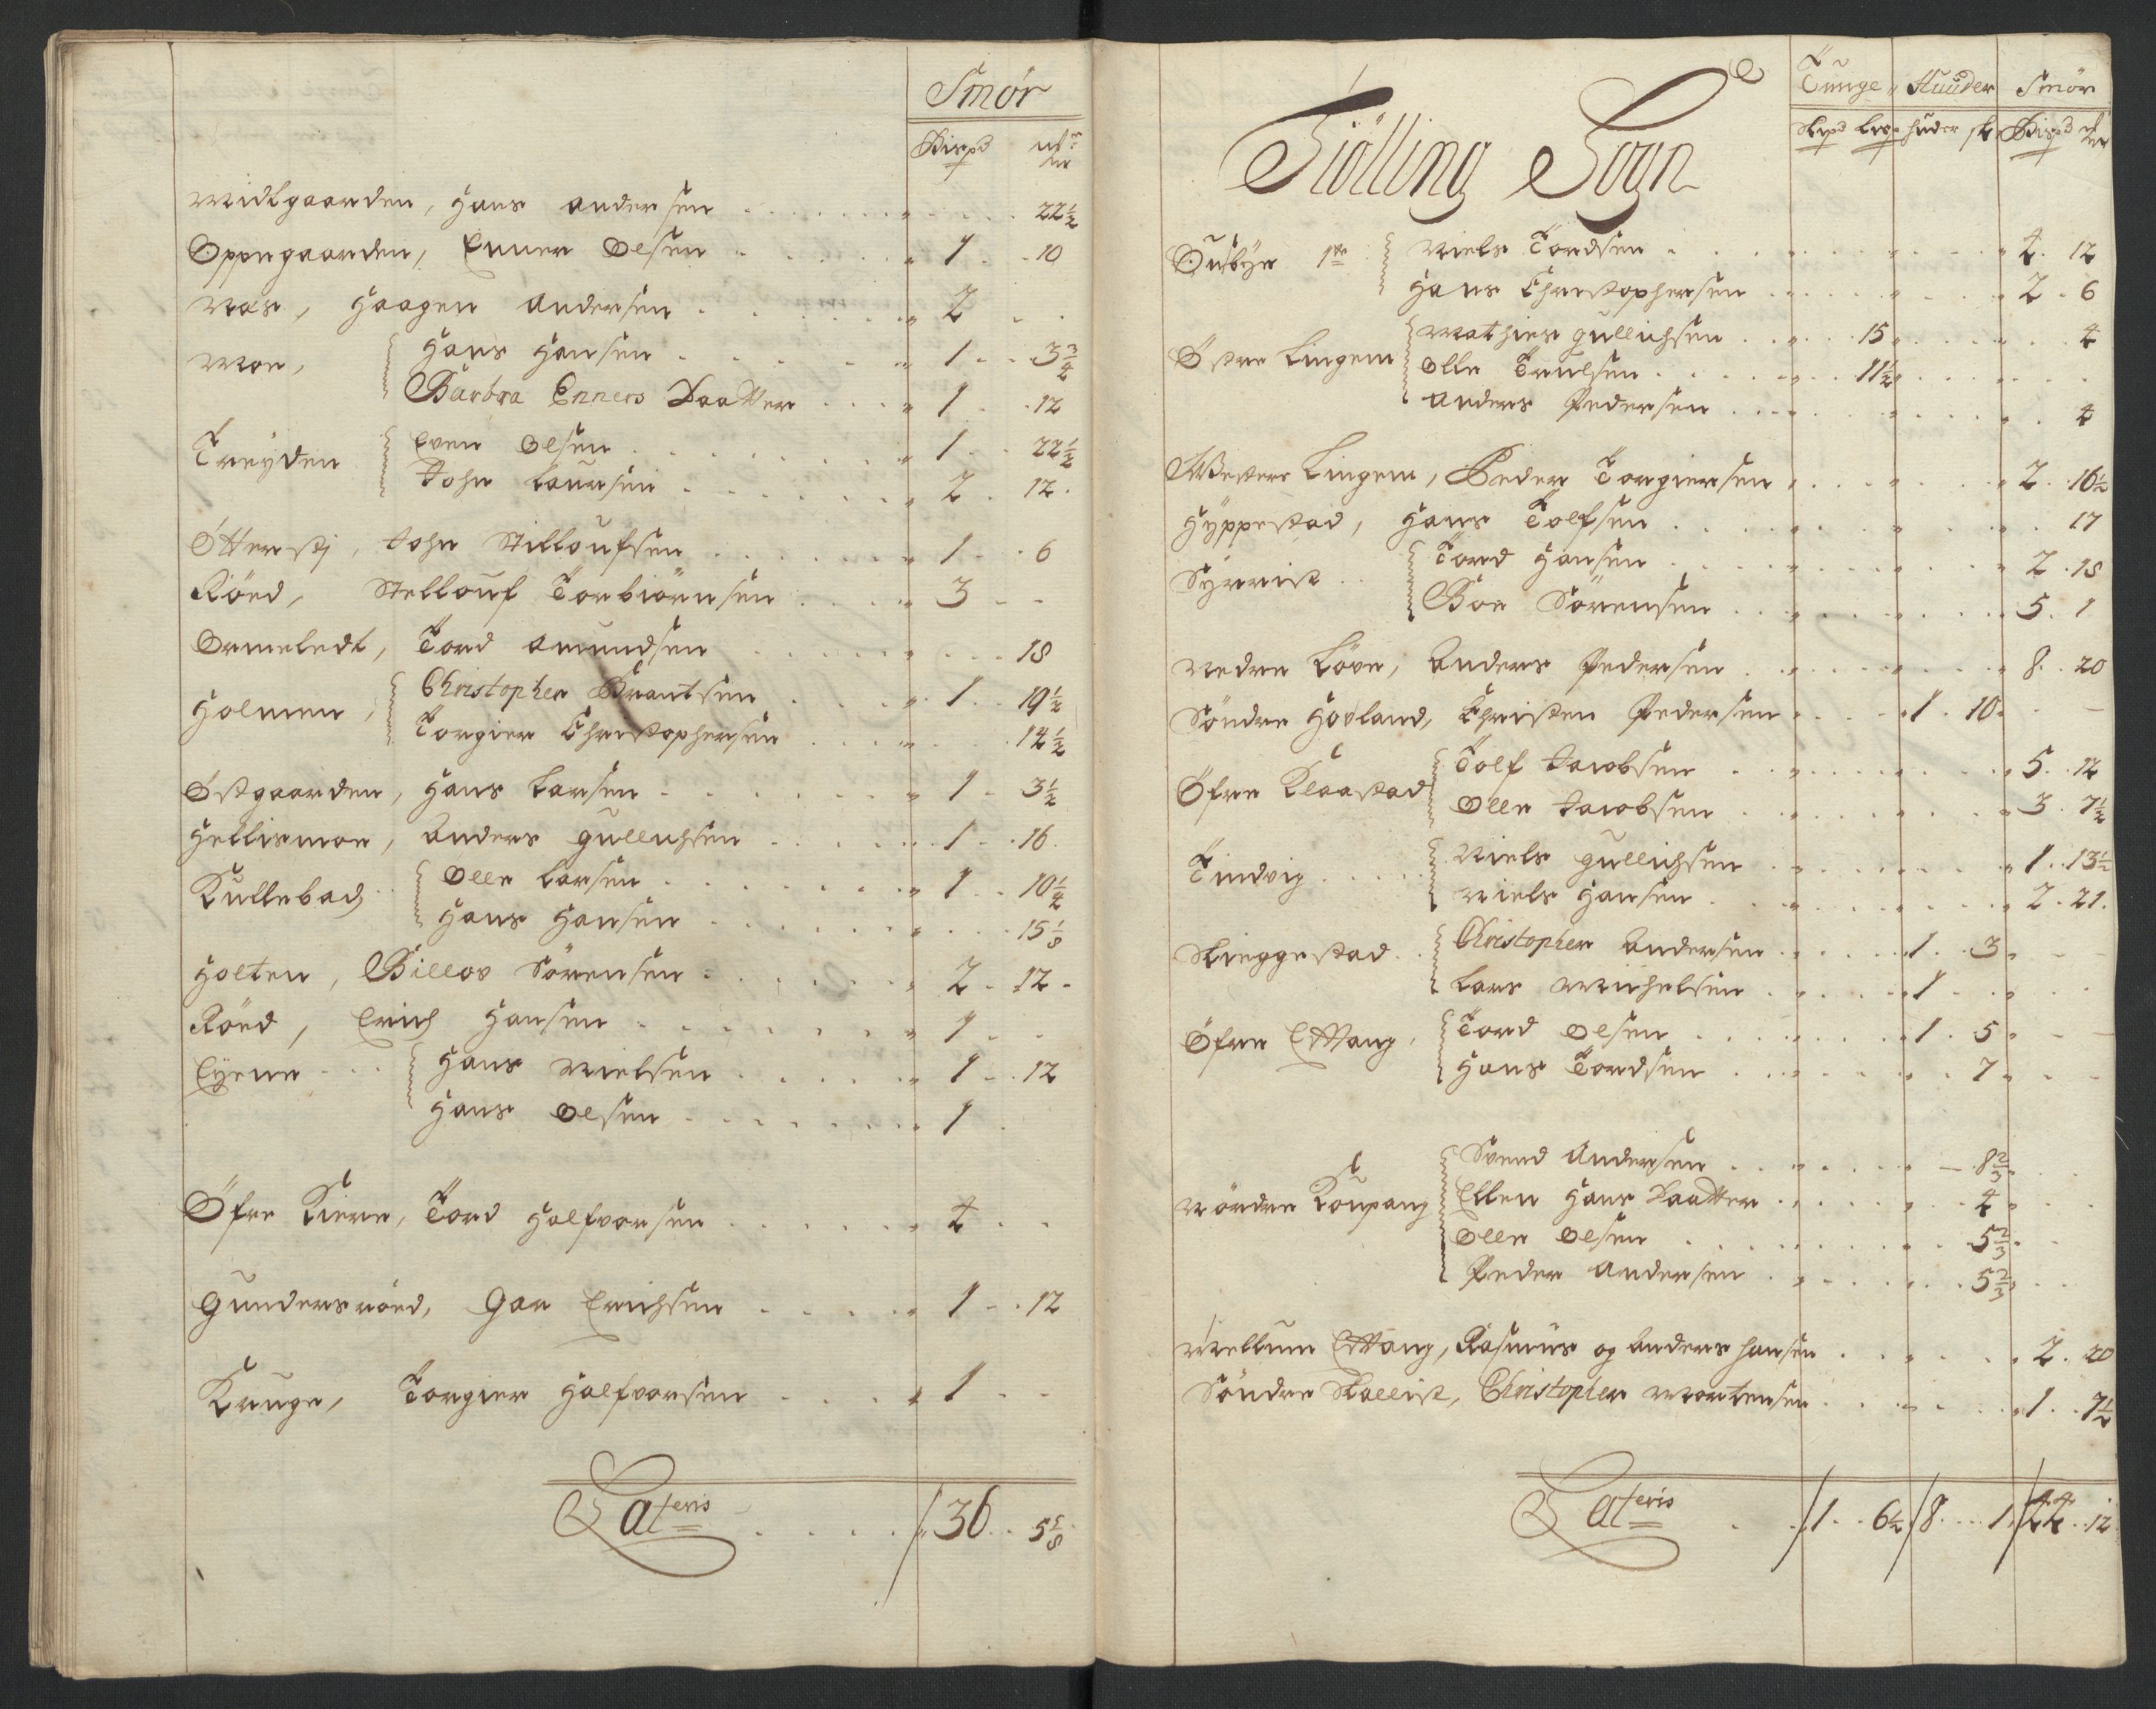 Smör
Bispd mr
Midtgaarden, Hans Andersen 22½
Oppegaarden, Enner Olsen 1 10
Næs, Haagen Andersen 2
Moe, Hans Hansen 1 3¾
Barbra Enners Daatter 1 12
Trøyden Even Olsen 1 22½
John Laursen 2 12
Otterstj, John Stilloufsen 1 6
Röed, Stellouf Torbiörnsen 3
Ormeledt, Tord Amundsen 18
Holmen, Christopher Brantsen 1 19½
Torgier Christophersen 14½
Østgaarden, Hans Larsen 1 3½
Hellismoe, Anders Gullichsen 1 16
Kullebach Olle Larsen 1 10¼
Hans Hansen 15⅛
Holten, Billov Sörensen 2 12
Röed, Erich Hansen 1
Eyene Hans Nielsen 1 12
Hans Olsen 1
Öfre Kiere, Tord Halfvorsen 4
Gundersröed, Goe Erichsen 1 12
Kruge, Torgier Halfvorsen 1
Lateris 36 5⅝
Tiölling Sogn
Tunge Huuder Smör
Skpd Lisp huder sk Bispd mr
Öusbye 1ste Niels Tordsen 4 12
Hans Christophersen 2 6
Östre Lingem Mathies Gullichsen 15 4
Olle Trulsen 11½
Anders Pedersen 4
Westere Lingem, Peder Torgiersen 2 16½
Hyppestad, Hans Tolfsen 17
Syrrist Tord Hansen 2 18
Boe Sörensen 5 1
Nedre Löve, Anders Pedersen 8 20
Söndre Hovland, Christen Pedersen 1 10
Öfre Klaastad Tolf Jacobsen 5 12
Olle Jacobsen 3 7½
Tindvig Niels Gullichsen 1 13½
Niels Hansen 2 21
Skieggestad Christopher Andersen 1 3
Lars Michelsen 1
Öfre Eftang, Tord Olsen 1 5
Hans Tordsen 7
Nördre Koupang Svend Andersen 8⅔
Ellen Hans Daatter 4
Olle Olsen 5⅔
Peder Andersen 5⅔
Mellum Eftang, Rasmus og Anders Hansen 2 20
Söndre Skallist, Christopher Mortensen 1 7½
Lateris 1 6½ 8 1 44 12